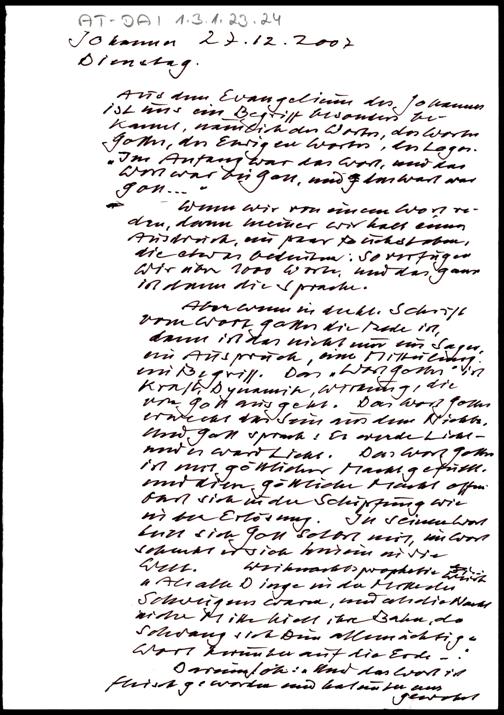 AT-DAI 1.3.1.23.24
Johannes 27.12.2007
Dienstag.
Aus dem Evangelium des Johannes
ist uns ein Begriff besonders be-
kannt, nämlich des Wortes, des Wortes
Gottes, des Ewigen Wortes, des Logos.
„Im Anfang war das Wort, und das
Wort war bei Gott, und das Wort war
Gott..."
Wenn wir von einem Wort re-
den, dann meinen wir halt einen
Ausdruck, ein paar Buchstaben,
die etwas bedeuten: So verfügen
wir über 1000 Worte, und das ganze
ist dann die Sprache.
Aber wenn in der hl. Schrift
vom Wort Gottes die Rede ist,
dann ist das nicht nur ein Sagen,
ein Ausspruch, eine Mitteilung,
ein Begriff. Das „Wort Gottes" ist
Kraft, Dynamik, Wirkung, die
von Gott ausgeht. Das Wort Gottes
erweckt das Sein aus dem Nichts.
Und Gott sprach: Es werde Licht -
und es ward Licht. Das Wort Gottes
ist mit göttlicher Macht gefüllt.
und diese göttliche Macht offen-
bart sich in der Schöpfung wie
in der Erlösung. In seinem Wort
teilt sich Gott selbst mit, im Wort
schenkt er sich hinein in die
Welt. Weihnachtsprophetie
„Als alle Dinge in der Mitte des
Schweigens waren, und als die Nacht
die Mitte hielt ihrer Bahn, da
schwang sich Dein allmächtiges
Wort herunter auf die Erde -."
Darum Joh.: „Und das Wort ist
Fleisch geworden und hat unter uns
gewohnt